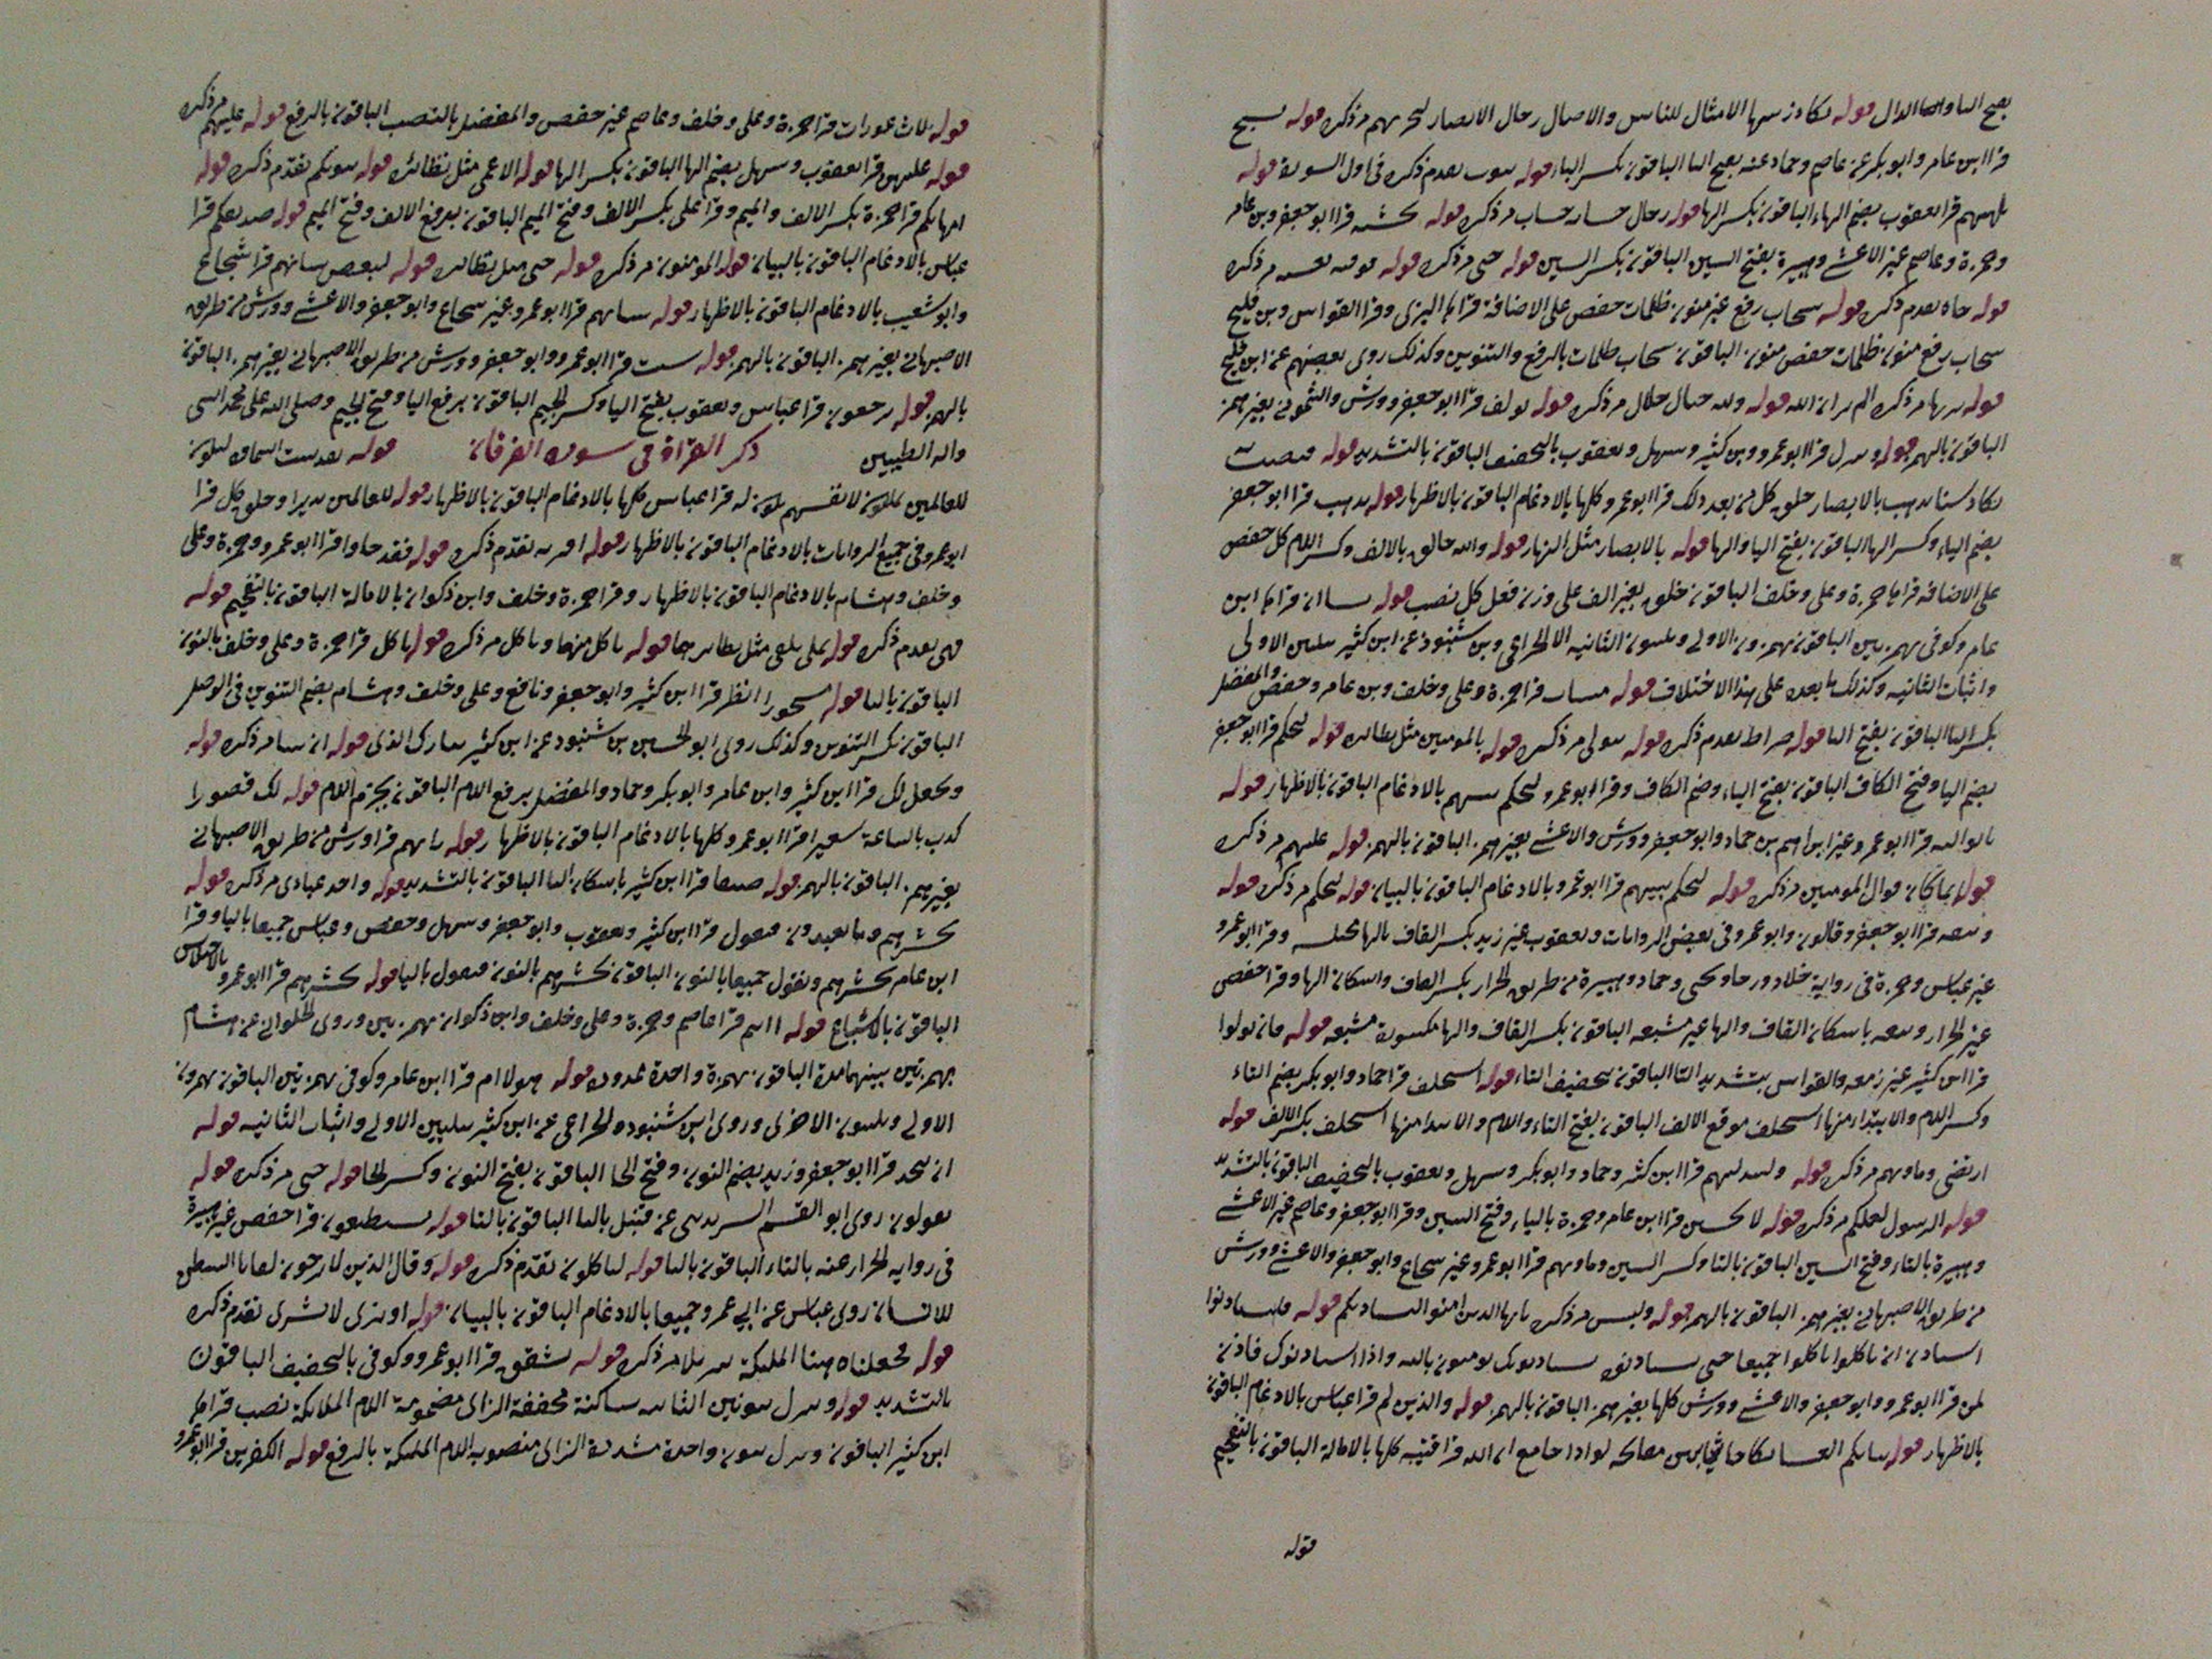 بفتح اليا والها الدال قوله يكاد زيتها الامثال للناس والاصال رجال الابصار ليجزيهم مر ذكره قوله يسبح
قرا ابن عامر وابو بكر عن عاصم وحماد عنه بفتح البا الباقون بكسر البا قوله بيوت تقدم ذكره في اول السورة قوله
تلهيهم قرا يعقوب بضم الهاء الباقون بكسر الها قوله رجال حسابه حساب مر ذكره قوله يحسبه قرا ابو جعفر وبن عامر
وحمزة وعاصم غير الاعشى وهبيرة بفتح السين الباقون بكسر السين قوله حتى مر ذكره قوله فوفيه يغشيه مر ذكره
قوله جاه تقدم ذكره قوله سحاب رفع غير منون ظلمات خفض على الاضافة قراها البزى وقرا القواس وبن فليح
سحاب رفع منون ظلمات خفض منون الباقون سحاب ظلمات بالرفع والتنوين وكذلك روى بعضهم عن ابن فليح
قوله يريها مر ذكره الم تر ان الله قوله ولله جبال خلال مر ذكره قوله يولف قرا ابو جعفر وورش والشموني بغير همز
الباقون بالهمز قوله وينزل قرا ابو عمرو وبن كثير وسهل ويعقوب بالتخفيف الباقون بالتشديد قوله فيصيب
يكاد سنا يذهب بالابصار خلق كل من بعد ذلك قرا ابو عمرو كلها بالادغام الباقون بالاظهار قوله يذهب قرا ابو جعفر
بضم الياء وكسر الها الباقون بفتح اليا والها قوله بالابصار مثل النهار قوله والله خالق بالالف وكسر اللام كل خفض
على الاضافه قراها حمزة وعلى وخلف الباقون خلق بغير الف على وزن فعل كل نصب قوله يشا ان قراها ابن
عامر وكوفي بهمزتين الباقون بهمزون الاولى ويلينون الثانيه الا الخزاعي وبن شنبوذ عن ابن كثير بتليين الاولى
واثبات الثانيه وكذلك ما بعده على هذا الاختلاف قوله مبينات قرا حمزة وعلى وخلف وبن عامر وحفص والمفضل
بكسر اليا الباقون بفتح اليا قوله صراط تقدم ذكره قوله يتولى مر ذكره قوله بالمومنين مثل نظائره قوله ليحكم قرا ابو جعفر
بضم اليا وفتح الكاف الباقون بفتح الياء وضم الكاف وقرا ابو عمرو ليحكم بينهم بالادغام الباقون بالاظهار قوله
ياتوا اليه قرا ابو عمرو غير ابراهيم بن حماد وابو جعفر وورش والاعشى بغير همز الباقون بالهمز قوله عليهم مر ذكره
قوله انما كان قوال المومنين مر ذكره قوله ليحكم بينهم قرا ابو عمرو بالادغام الباقون بالبيان قوله ليحكم مر ذكره قوله
ويتقه قرا ابو جعفر وقالون وابو عمرو في بعض الروايات ويعقوب غير زيد بكسر القاف بالها مختلسه وقرا ابو عمرو
غير عباس وحمزة في رواية خلاد ورجا ويحيى وحماد وهبيرة من طريق الخزاز بكسر القاف واسكان الها وقرا حفص
غير الخزاز ويتقه باسكان القاف والها غير مشبعه الباقون بكسر القاف والها مكسورة مشبعه قوله فان تولوا
قرا ابن كثير غير زمعه والقواس بتشديد التا الباقون بتخفيف التاء قوله استخلف قرا حماد وابو بكر بضم التاء
وكسر اللام والابتداء منها استخلف موقع الالف الباقون بفتح التاء واللام والابتدا منها استخلف بكسر الالف قوله
ارتضى وماويهم مر ذكره قوله وليبدلنهم قرا ابن كثير وحماد وابو بكر وسهل ويعقوب بالتخفيف الباقون بالتشديد
قوله الرسول لعلكم مر ذكره قوله لا تحسبن قرا ابن عامر وحمزة بالياء وفتح السين وقرا ابو جعفر وعاصم غير الاعشى
وهبيرة بالتاء وفتح السين الباقون بالتا وكسر السين وماويهم قرا ابو عمرو غير شجاع وابو جعفر والاعشى وورش
من طريق الاصبهاني بغير همز الباقون بالهمز قوله ولبيس مر ذكره يا ايها الذين امنوا ليستاذنكم قوله فليستاذنوا
استاذن ان ياكلوا تاكلوا جميعا حتى يستاذنوه يستاذنونك يومنون بالله واذا استاذنوك فاذن
لمن قرا ابو عمرو وابو جعفر والاعشى وورش كلها بغير همز الباقون بالهمز قوله والذين لم قرا عباس بالادغام الباقون
بالاظهار قوله
قوله
قوله ثلاث عورات قرا حمزة وعلى وخلف وعاصم غير حفص والمفضل بالنصب الباقون بالرفع قوله عليهم مر ذكره
قوله عليهن قرا يعقوب وسهل بضم الها الباقون بكسر الها قوله الاعمى مثل نظائره قوله بيوتكم تقدم ذكره قوله
امهاتكم قرا حمزة بكسر الالف والميم وقرا على بكسر الالف وفتح الميم الباقون برفع الالف وفتح الميم قوله صديقكم قرا
عباس بالادغام الباقون بالبيان قوله المومنون مر ذكره قوله حتى مثل نظائره قوله لبعض شانهم قرا شجاع
وابو شعيب بالادغام الباقون بالاظهار قوله شانهم قرا ابو عمرو غير شجاع وابو جعفر والاعشى وورش من طريق
الاصبهاني بغير همز الباقون بالهمز قوله شيت قرا ابو عمرو وابو جعفر وورش من طريق الاصبهاني بغير همز الباقون
بالهمز قوله يرجعون قرا عباس ويعقوب بفتح اليا وكسر الجيم الباقون برفع اليا وفتح الجيم وصلى الله على محمد النبي
واله الطيبين ذكر القراة في سورة الفرقان قوله
للعالمين يملكون لانفسهم يكون له قرا عباس كلها بالادغام الباقون بالاظهار قوله للعالمين نذيرا وخلق كل قرا
ابو عمرو في جميع الروايات بالادغام الباقون بالاظهار قوله افتريه تقدم ذكره قوله فقد جاوا قرا ابو عمرو وحمزة وعلى
وخلف وهشام بالادغام الباقون بالاظهار وقرا حمزة وخلف وابن ذكوان بالامالة الباقون بالتفخيم قوله
فهي تقدم ذكره قوله تملى يلقى مثل نظائرهما قوله ياكل منها وياكل مر ذكره قوله ياكل قرا حمزة وعلى وخلف بالنون
الباقون باليا قوله مسحورا انظر قرا ابن كثير وابو جعفر ونافع وعلى وخلف وهشام بضم التنوين في الوصل
الباقون بكسر التنوين وكذلك روى ابو الحسين بن شنبوذ عن ابن كثير تبارك الذى قوله ان شا مر ذكره قوله
ويجعل لك قرا ابن كثير وابن عامر وابو بكر وحماد والمفضل برفع اللام الباقون بجزم اللام قوله لك قصورا
كذب بالساعة سعيرا قرا ابو عمرو كلها بالادغام الباقون بالاظهار قوله راتهم قرا ورش من طريق الاصبهاني
بغير همز الباقون بالهمز قوله ضيقا قرا ابن كثير باسكان اليا الباقون بالتشديد قوله واحد عبادى مر ذكره قوله
نحشرهم وما يعبدون فيقول قرا ابن كثير ويعقوب وابو جعفر وسهل وحفص وعباس جميعا باليا وقرا
ابن عامر نحشرهم ونقول جميعا بالنون الباقون نحشرهم بالنون فيقول باليا قوله نحشرهم قرا ابو عمرو بالاختلاس
الباقون بالاشباع قوله اانتم قرا عاصم وحمزة وعلى وخلف وابن ذكوان بهمزتين وروى الحلواني عن هشام
بهمزتين بينهما مدة الباقون بهمزة واحدة ممدوده قوله هولا ام قرا ابن عامر وكوفي بهمزتين الباقون بهمزون
الاولى ويلينون الاخرى وروى ابن شنبوذ والخزاعي عن ابن كثير بتليين الاولى واثبات الثانيه قوله
ان نتخذ قرا ابو جعفر وزيد بضم النون وفتح الخا الباقون بفتح النون وكسر الخا قوله حتى مر ذكره قوله
يقولون روى ابو القسم السرنديبى عن قنبل باليا الباقون بالتا قوله يستطيعون قرا حفص غير هبيرة
في روايه الخزاز عنه بالتاء الباقون باليا قوله لياكلون تقدم ذكره قوله وقال الذين لا يرجون لقانا الشيطن
للانسان روى عباس عن ابي عمرو جميعا بالادغام الباقون بالبيان قوله او نرى لا بشرى تقدم ذكره
قوله فجعلناه هبا المليكة تنزيلا مر ذكره قوله تشقق قرا ابو عمرو وكوفي بالتخفيف الباقون
بالتشديد قوله وننزل بنونين الثانيه ساكنة مخففة الزاى مضمومة اللام الملايكة نصب قراها
ابن كثير الباقون ونزل بنون واحدة مشددة الزاى منصوبه اللام المليكة بالرفع قوله الكفرين قرا ابو عمرو